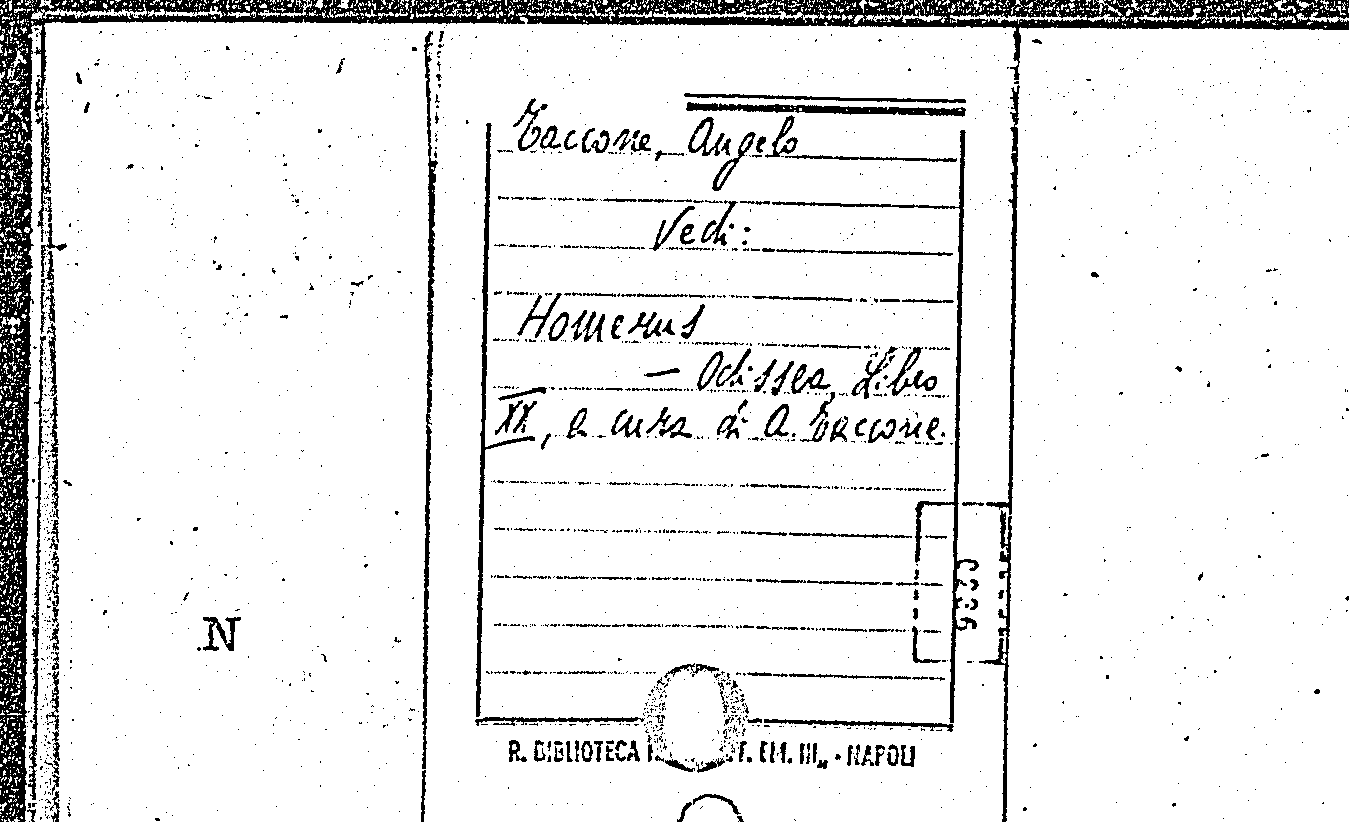 Taccone, Angelo
Vedi:
Homerus
— Odissea, Libro
XX, a cura di A. Taccone.
C236
N
R. BIBLIOTECA T. EM. III„ • NAPOLI